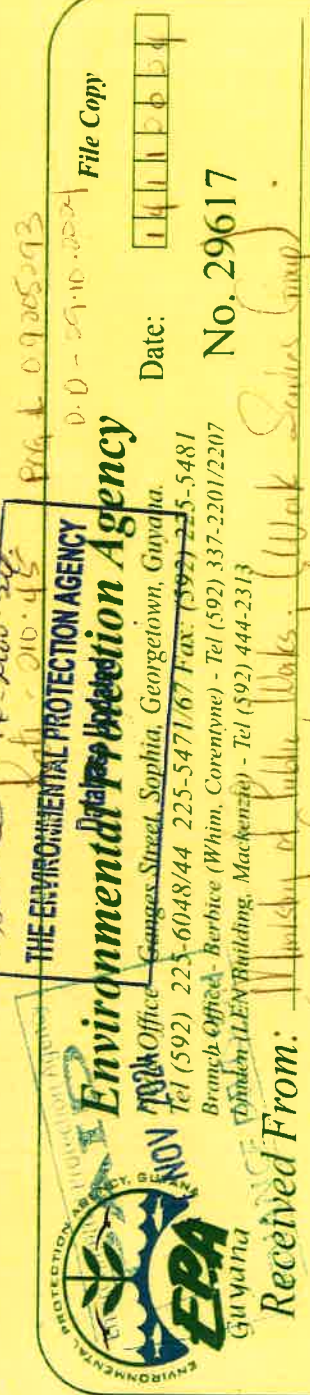 Rate - 210.45
D.D - 29.10.2024
THE ENVIRONMENTAL PROTECTION AGENCY
Database Updated
NOV 2024
Environmental Protection Agency
File Copy
Office Ganges Street, Sophia, Georgetown, Guyana.
Tel (592) 225-6048/44 225-5471/67 Fax: (592) 225-5481
Date: 14112024
Branch Office - Berbice (Whim, Corentyne) - Tel (592) 337-2201/2207
Linden (LEN Building, Mackenzie) - Tel (592) 444-2313
No. 29617
ENVIRONMENTAL PROTECTION AGENCY, GUYANA
EPA
Guyana
Received From: Ministry of Public Works. (Work Services Group)